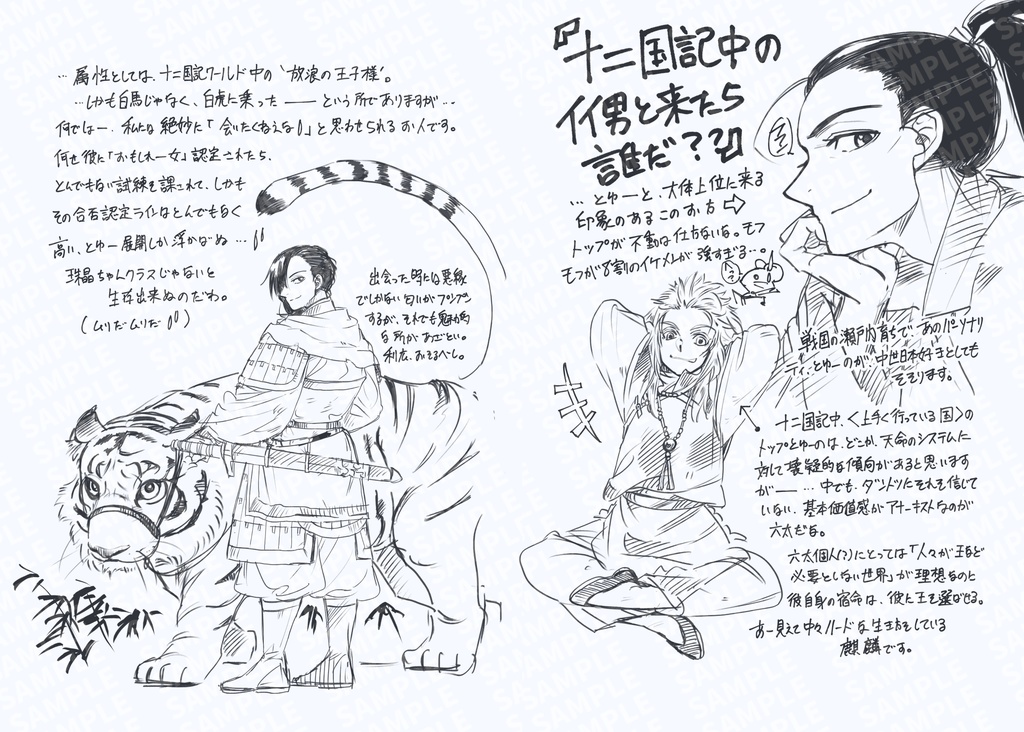 『十二国記中の
イイ男と来たら
誰だ??』
… とゆーと、大体上位に来る
印象のあるこのお方⇨
トップが不動な仕方ないな。モフ
モフが8割のイケメンが強すぎる…。
戦国の瀬戸内育ちで、あのパーソナリ
ティ、とゆーのが、中世日本好きとしても
そそります。
十二国記中、〈上手く行っている国〉の
トップとゆーのは、どこか、天命のシステムに
対して懐疑的な傾向があると思います
が―― … 中でも、ダントツにそれを信じて
いない、基本価値感がアナーキストなのが
六太だな。
六太個人(?)にとっては「人々が王など
必要としない世界」が理想なのに
彼自身の宿命は、彼に王を選ばせる。
あー見えて中々ハードな生き方をしている
麒麟です。
… 属性としては、十二国記ワールド中の“放浪の王子様”。
…しかも白馬じゃなく、白虎に乗った ―― という所でありますが…
何でしょー、私たは絶妙に「会いたくねえな!」と思わせられるお人です。
何せ彼に「おもしれー女」認定されたら、
とんでもない試練を課されて、しかも
その合否認定ラインはとんでもなく
高い、とゆー展開しか浮かばぬ…!!
珠晶ちゃんクラスじゃないと
生存出来ぬのだわ。
(ムリだムリだ!!)
出会った時には悪縁
でしかない匂いがプンプン
するが、それでも魅力的
な所があざとい。
利広、おそるべし。
SAMPLE